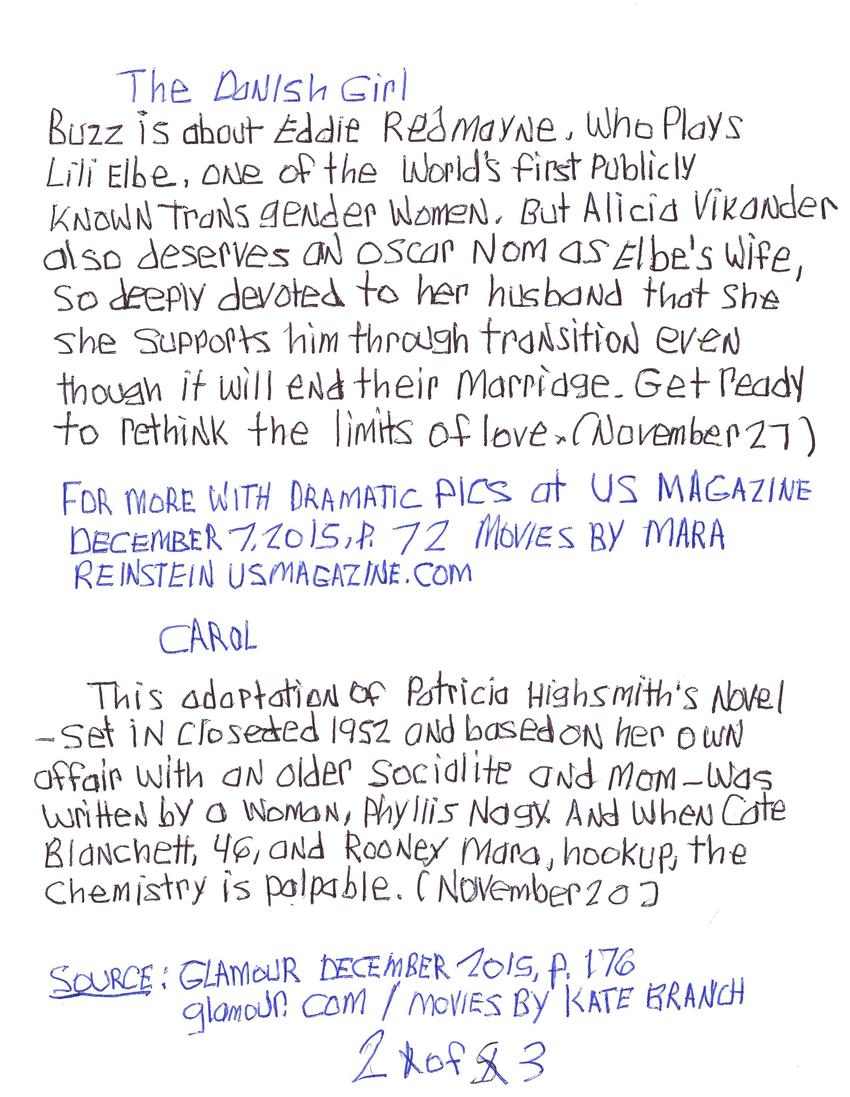 The Danish Girl
Buzz is about Eddie Redmayne, who Plays
Lili Elbe, one of the World's first Publicly
KNOWN Transgender Women. But Alicia Vikander
also deserves an Oscar Nom as Elbe's wife,
so deeply devoted to her husband that she
she supports him through transition even
though it will end their Marriage. Get ready
to rethink the limits of love. (November 27)
FOR MORE WITH DRAMATIC PICS at US MAGAZINE
DECEMBER 7, 2015, P. 72 MOVIES BY MARA
REINSTEIN USMAGAZINE.COM
CAROL
This adaptation of Patricia Highsmith's Novel
-set in Closeted 1952 and based on her own
affair with an older Socialite and mom-was
written by a Woman, Phyllis Nagy. And When Cate
Blanchett, 46, and Rooney Mara, hookup, the
Chemistry is palpable. (November 20)
SOURCE: GLAMOUR DECEMBER 2015, P. 176
glamour.com / MOVIES BY KATE BRANCH
2 of 3